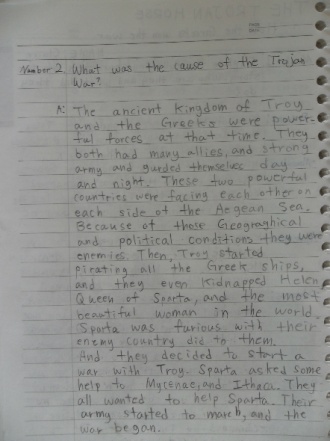 Number 2. What was the cause of the Trojan
War?
A: The ancient kingdom of Troy
and the Greeks were power-
ful forces at that time. They
both had many allies, and strong
army and gurded themselves day
and night. These two powerful
countries were facing each other on
each side of the Aegean Sea.
Because of these Geographical
and political conditions they were
enemies. Then, Troy started
pirating all the Greek ships,
and they even kidnapped Helen
Queen of Sparta, and the most
beautiful woman in the world.
Sparta was furious with their
enemy country did to them.
And they decided to start a
war with Troy. Sparta asked some
help to Mycenae, and Ithaca. They
all wanted to help Sparta. Their
army started to march, and the
war began.